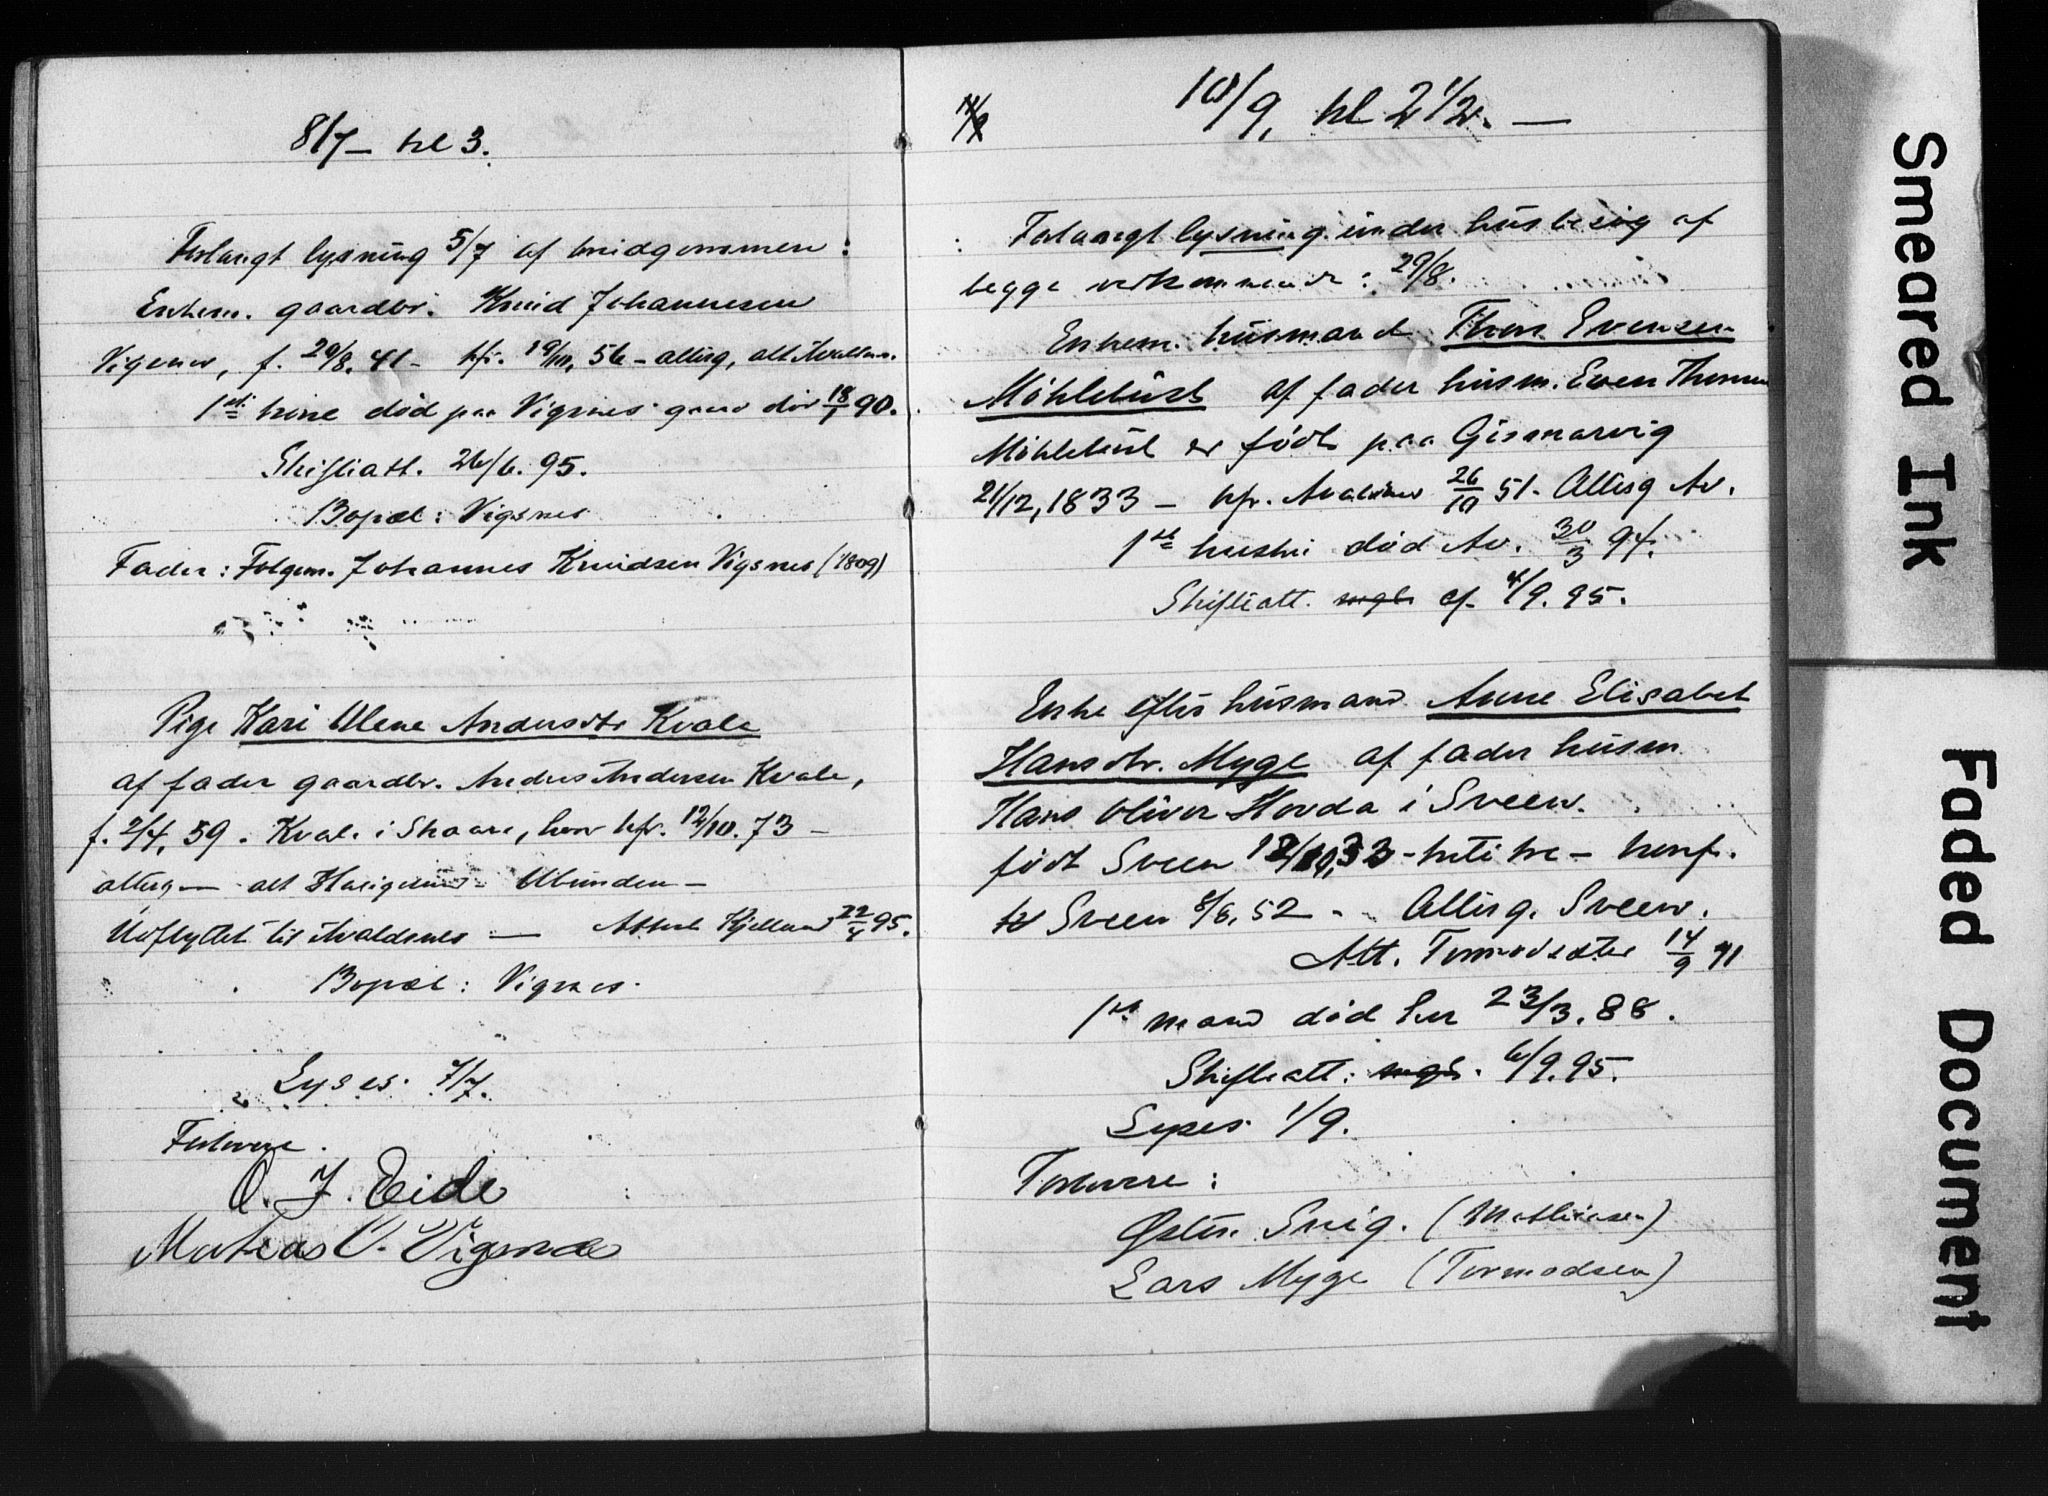 8/7 – kl 3.
Forlangt lysning 5/7 af brudgommen :
Enkem. gaardbr. Knud Johannesen
Vigsnes, f. 29/8, 41 – kfr. 19/10, 56 – alterg,
1ste kone død paa Vigsnes gaard 18/1 90.
Skifteatt. 26/6. 95.
Bopæl : Vigsnes
Fader : Folgem. Johannes Knudsen Vigsnes (1809)
Pige Kari Olene Andersdtr Kvale
af fader gaardbr. Anders Andersen Kvale,
f. 2/4, 59 . Kvale i Skaare, kfr. 12/10. 73 –
alterg – Ubunden –
Udflyttet til Avaldsnes — Attest Kjelland 22/4 95.
Bopæl : Vigsnes.
Lyses. 7/7.
Forlovere .
O. J. Eide
Matias O. Vigsnes
10/9, kl 2 1/2. —
Forlangt lysning under husbesøg af
begge vedkommende : 29/8.
Enkem. husmand Thom. Evensen
Møhlebust af fader husm. Even Thomsen
Møhlebust er født paa Gismarvig
21/12, 1833 – kfr. Avaldsnes 26/10 51. Alterg Av.
1ste hustru død Av. 30/3 94.
Skifteatt. mgl. af 4/9. 95.
Enke efter husmand Anne Elisabet
Hansdtr. Myge af fader husm.
Hans Oliver Hovda i Sveen.
født Sveen – konf.
Sveen 8/8, 52 – Alterg. Sveen.
Att. 14/9 91
1ste mand død her 23/3. 88.
Skifteatt : mgl. 6/9. 95.
Lyses 1/9.
Forlovere :
Østen Snig. (Mathiasen)
Lars Myge (Tormodsen)
Smeared Ink
Faded Document